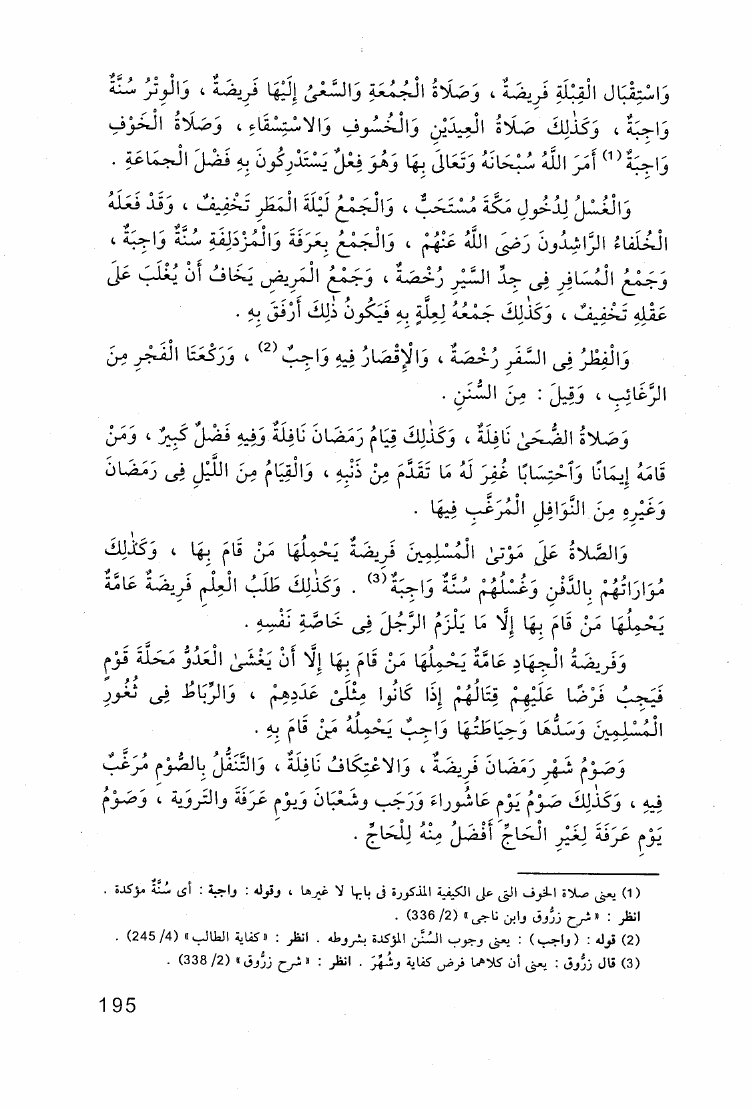 وَاسْتِقْبَال الْقِبْلَةِ فَرِيضَةٌ ، وَصَلَاةُ الْجُمُعَةِ وَالسَّعْىُ إِلَيْهَا فَرِيضَةٌ ، وَالْوِتْرُ سُنَّةٌ
وَاجِبَةٌ ، وَكَذٰلِكَ صَلَاةُ الْعِيدَيْنِ وَالْخُسُوفِ وَالاسْتِسْقَاءِ ، وَصَلَاةُ الْخَوْفِ
وَاجِبَةٌ (1) أَمَرَ اللَّهُ سُبْحَانَهُ وَتَعَالَىٰ بِهَا وَهُوَ فِعْلٌ يَسْتَدْرِكُونَ بِهِ فَضْلَ الْجمَاعَةِ .
وَالْغُسْلُ لِدُخُولِ مَكَّةَ مُسْتَحَبٌّ ، وَالْجَمْعُ لَيْلَةَ الْمَطَرِ تَخْفِيفٌ ، وَقَدْ فَعَلَهُ
الْخُلَفَاءُ الرَّاشِدُونَ رَضِىَ اللَّهُ عَنْهُمْ ، وَالْجَمْعُ بِعَرَفَةَ وَالْمُزْدَلِفَةِ سُنَّةٌ وَاجِبَةٌ ،
وَجَمْعُ الْمُسَافِرِ فِى جِدِّ السَّيْرِ رُخْصَةٌ ، وَجَمْعُ الْمَرِيضِ يَخَافُ أَنْ يُغْلَبَ عَلَىٰ
عَقْلِهِ تَخْفِيفٌ ، وَكَذٰلِكَ جَمْعُهُ لِعِلَّةٍ بِهِ فَيَكُونُ ذٰلِكَ أَرْفَقَ بِهِ .
وَالْفِطْرُ فِى السَّفَرِ رُخْصَةٌ ، وَالْإِقْصَارُ فِيهِ وَاجِبٌ (2) ، وَرَكْعَتَا الْفَجْرِ مِنَ
الرَّغَائِبِ ، وَقِيلَ : مِنَ السُّنَنِ .
وَصَلاةُ الضُّحَىٰ نَافِلَةٌ ، وَكَذٰلِكَ قِيَامُ رَمَضَانَ نَافِلَةٌ وَفِيهِ فَضْلٌ كَبِيرٌ ، وَمَنْ
قَامَهُ إِيمَانًا وَٱحْتِسَابًا غُفِرَ لَهُ مَا تَقَدَّمَ مِنْ ذَنْبِهِ ، وَالْقِيَامُ مِنَ اللَّيْلِ فِى رَمَضَانَ
وَغَيْرِهِ مِنَ النَّوَافِلِ الْمُرَغَّبِ فِيهَا .
وَالصَّلاةُ عَلَىٰ مَوْتَى الْمُسْلِمِينَ فَرِيضَةٌ يَحْمِلُهَا مَنْ قَامَ بِهَا ، وَكَذٰلِكَ
مُوَارَاتُهُمْ بِالدَّفْنِ وَغُسْلُهُمْ سُنَّةٌ وَاجِبَةٌ (3) . وَكَذٰلِكَ طَلَبُ الْعِلْمِ فَرِيضَةٌ عَامَّةٌ
يَحْمِلُهَا مَنْ قَامَ بِهَا إِلَّا مَا يَلْزَمُ الرَّجُلَ فِى خَاصَّةِ نَفْسِهِ .
وَفَرِيضَةُ الْجِهَادِ عَامَّةٌ يَحْمِلُهَا مَنْ قَامَ بِهَا إِلَّا أَنْ يَغْشَىٰ الْعَدُوُّ مَحَلَّةَ قَوْمٍ
فَيَجِبُ فَرْضًا عَلَيْهِمْ قِتَالُهُمْ إِذَا كَانُوا مِثْلَىْ عَدَدِهِمْ ، وَالرِّبَاطُ فِى ثُغُورِ
الْمُسْلِمِينَ وَسَدُّهَا وَحِيَاطَتُهَا وَاجِبٌ يَحْمِلُهُ مَنْ قَامَ بِهِ .
وَصَوْمُ شَهْرِ رَمَضَانَ فَرِيضَةٌ ، وَالاعْتِكَافُ نَافِلَةٌ ، وَالتَّنَفُّلُ بِالصَّوْمِ مُرَغَّبٌ
فِيهِ ، وَكَذٰلِكَ صَوْمُ يَوْمِ عَاشُورَاءَ وَرَجَبٍ وشَعْبَانَ وَيومِ عَرَفَةَ والتروية ، وَصَوْمُ
يَوْمِ عَرَفَةَ لِغَيْرِ الْحَاجِّ أَفْضَلُ مِنْهُ لِلْحَاجِّ .
(1) يعنى صلاة الخوف التى على الكيفية المذكورة فى بابها لا غيرها ، وقوله : واجبة : أى سُنَّةٌ مؤكدة .
انظر : « شرح زرُّوق وابن ناجى » (2/ 336) .
(2) قوله : ( واجب ) : يعنى وجوب السُّنن المؤكدة بشروطه . انظر : « كفاية الطالب » (4/ 245) .
(3) قال زرُّوق : يعنى أن كلاهما فرض كفاية وشُهِّرَ . انظر : « شرح زرُّوق » (2/ 338) .
195